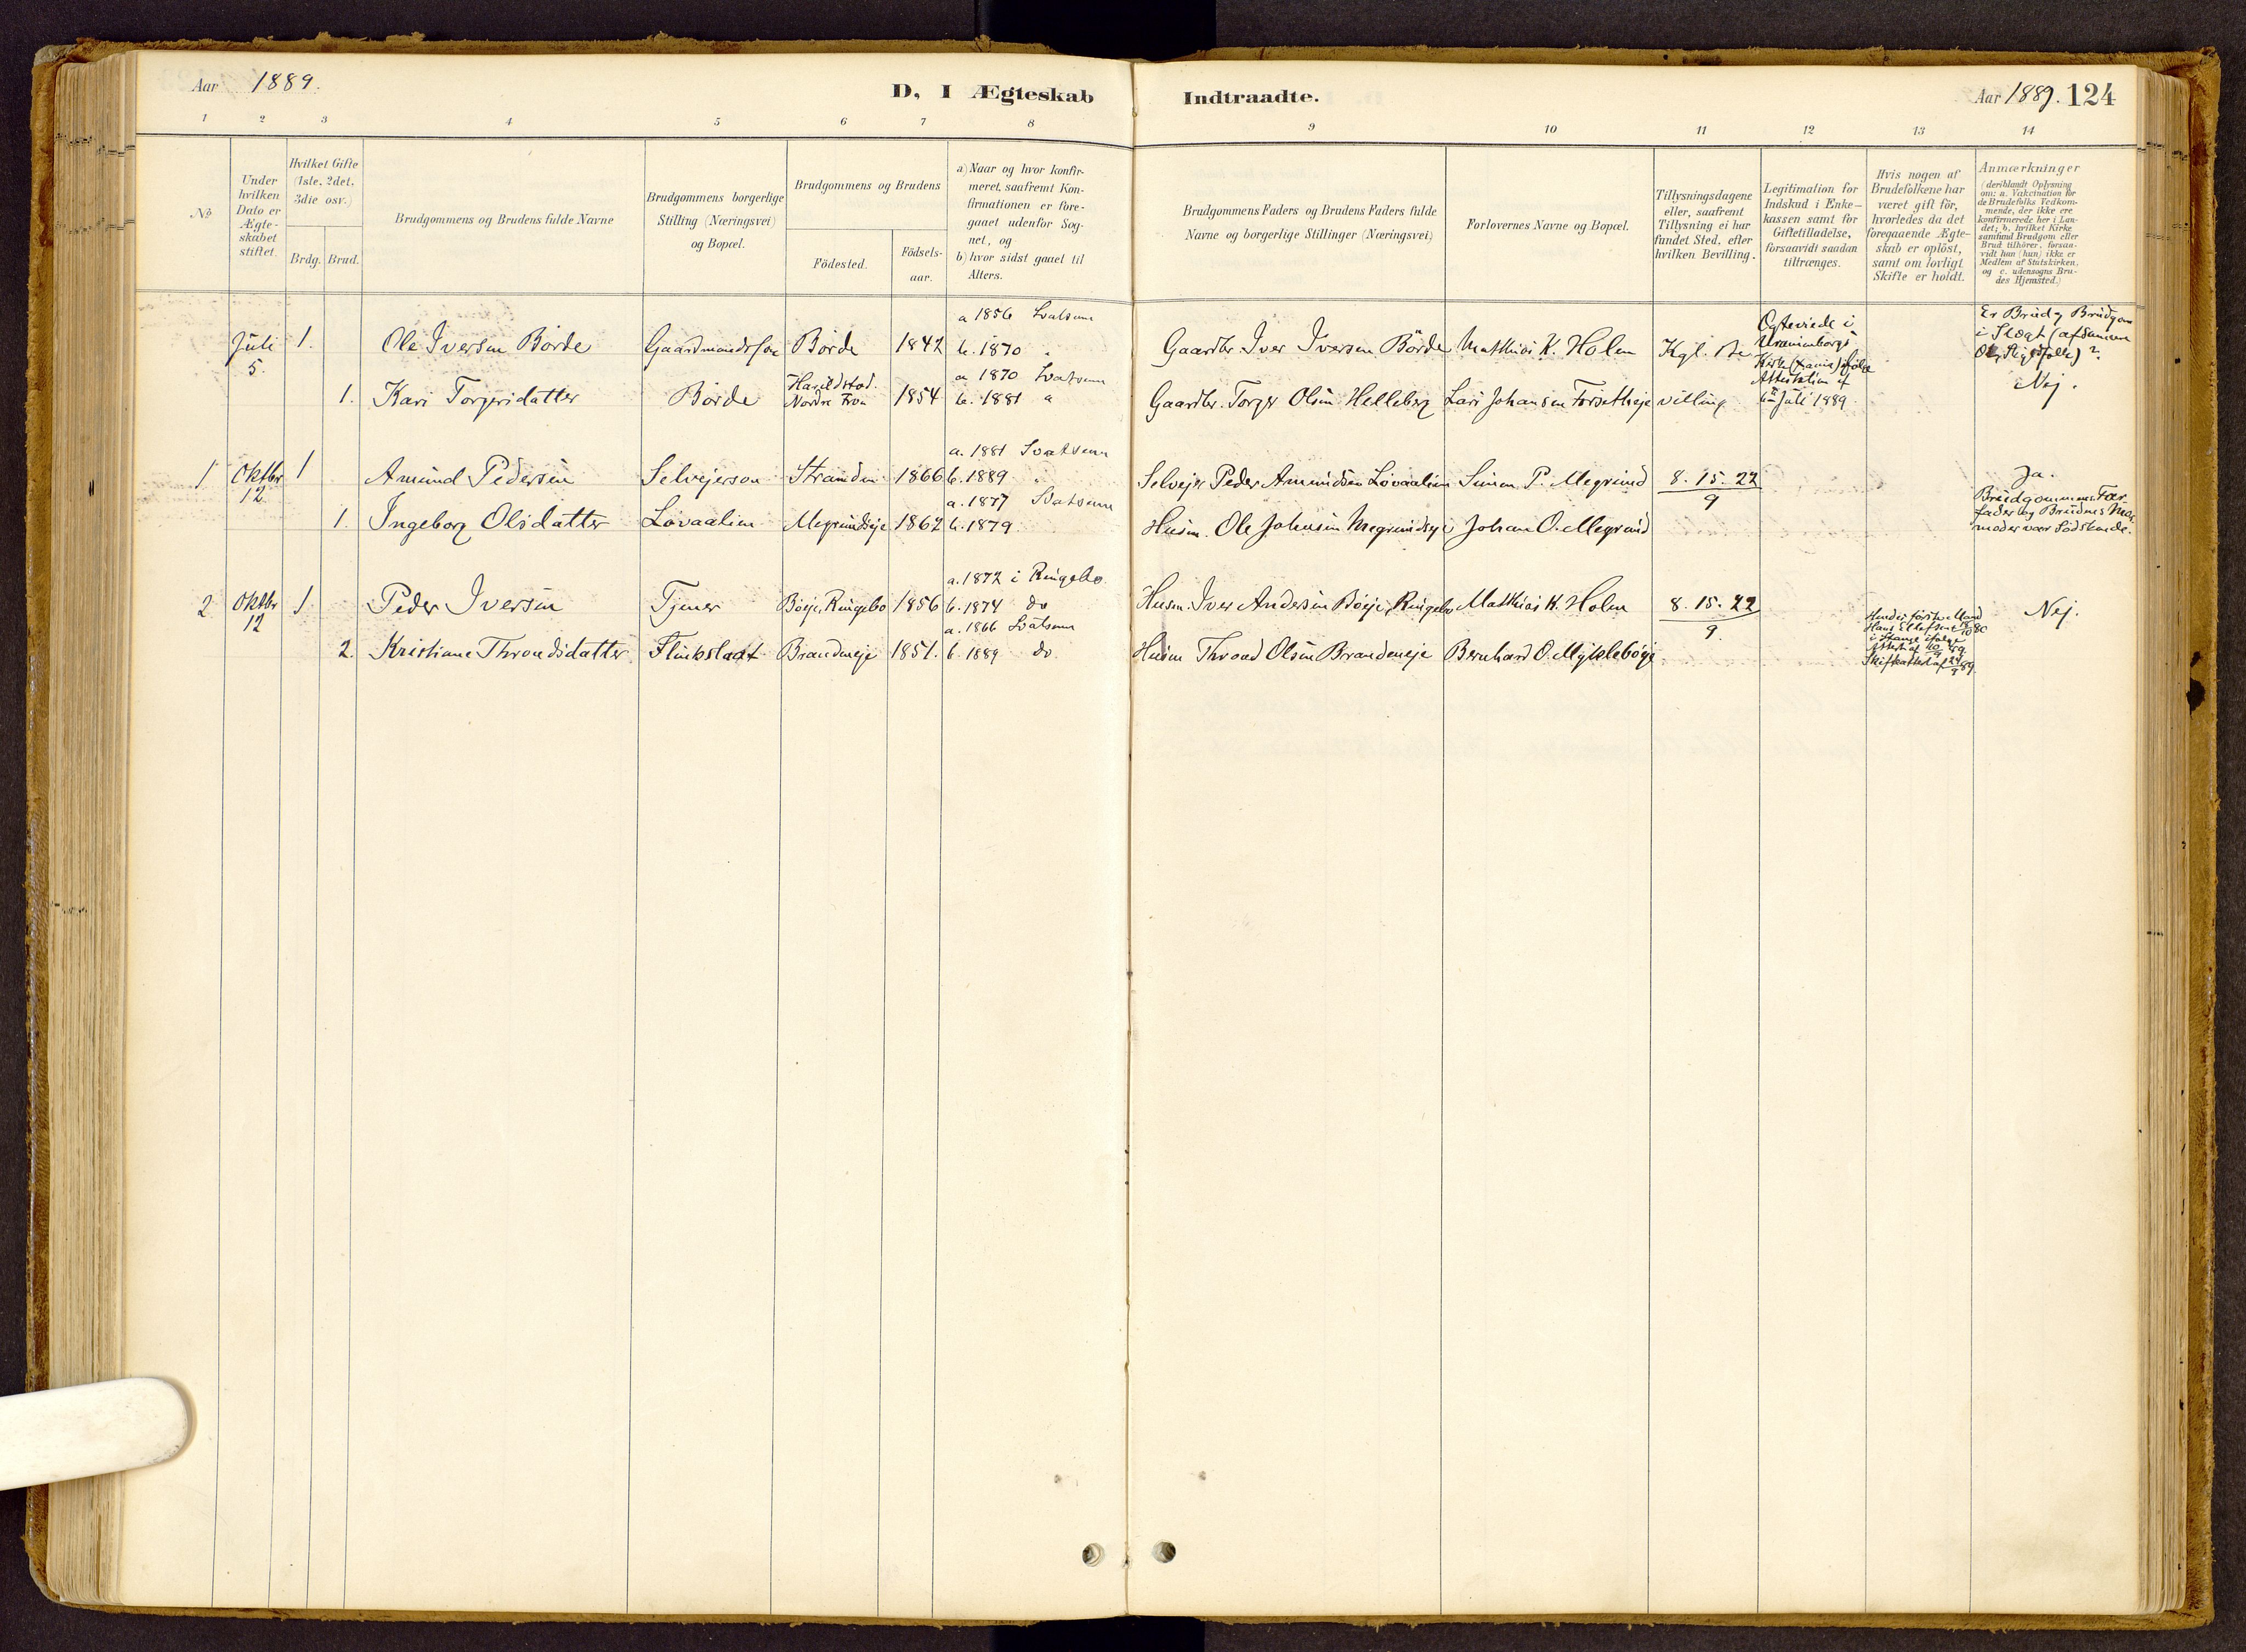 Aar 1889.
D, I Ægteskab Indtraadte.
Aar 1889. 124
1 2 3 4 5 6 7 8 9 10 11 12 13 14
No
Under hvilken Dato er Ægte-skabet stiftet.
Hvilket Gifte (1ste, 2det, 3die osv.)
Brdg. Brud.
Brudgommens og Brudens fulde Navne
Brudgommens borgerlige Stilling (Næringsvei) og Bopæl.
Brudgommens og Brudens
Födested. Födsels-aar.
a) Naar og hvor konfir-
meret, saafremt Kon-
firmationen er fore-
gaaet udenfor Sog-
net, og
b) hvor sidst gaaet til
Alters.
Brudgommens Faders og Brudens Faders fulde
Navne og borgerlige Stillinger (Næringsvei)
Forlovernes Navne og Bopæl.
Tillysningsdagene
eller, saafremt
Tillysning ei har
fundet Sted, efter
hvilken Bevilling.
Legitimation for
Indskud i Enke-
kassen samt for
Giftetilladelse,
forsaavidt saadan
tiltrænges.
Hvis nogen af
Brudefolkene har
været gift för,
hvorledes da det
foregaaende Ægte-
skab er oplöst,
samt om lovligt
Skifte er holdt.
Anmærkninger
(deriblandt Oplysning
om: a. Vakcination for
de Brudefolks Vedkom-
mende, der ikke ere
konfirmerede her i Lan-
det; b. hvilket Kirke
samfund Brudgom eller
Brud tilhörer, forsaa-
vidt han (hun) ikke er
Medlem af Statskirken,
og c. udensogns Bru-
des Hjemsted.)
Juli 5. 1. Ole Iversen Börde Gaardmandssön Börde 1842 a 1856 Svatsum b. 1870 "
Gaardbr. Iver Iversen Börde Matthias K. Holen Kgl. Be
Ægteviede i Uranienborgs Kirke
Attestation af 6te Juli 1889.
Er Brud og Brudgom i Slægt
Nej.
1. Kari Torgersdatter Börde Nordre Fron 1854 a 1870 Svatsum b. 1881 "
Gaardbr. Torger Olsen Helleberg Lars Johansen Forsetheje villing
1 Oktbr 12 1 Amund Pedersen Selvejersön Stranden 1866 a. 1881 Svatsum b. 1889 "
Selvejer Peder Amundsen Lövaalien Simen P. Megrund 8. 15. 22 / 9
Ja.
Brudgommens Far-
fader og Brudens Mor-
moder var Södskende.
1. Ingeborg Olsdatter Lövaalien Megrundseje 1862 a. 1877 Svatsum b. 1879
Husm. Ole Johnsen Megrundseje Johan O. Megrund
2 Oktbr 12 1 Peder Iversen Tjener Böeje, Ringebo 1856 a. 1872 i Ringebo b. 1874 do
Husm. Iver Andersen Böeje, Ringebo Matthias K. Holen 8. 15. 22 / 9.
Nej.
2. Kristiane Throndsdatter Flinkslaat Brandneje 1851. a. 1866 Svatsum b. 1889 do
Husm Thrond Olsen Brandneje Bernhard O. Mykleböje
Hendes förste Mand
Skifteattest af 24/9 89.